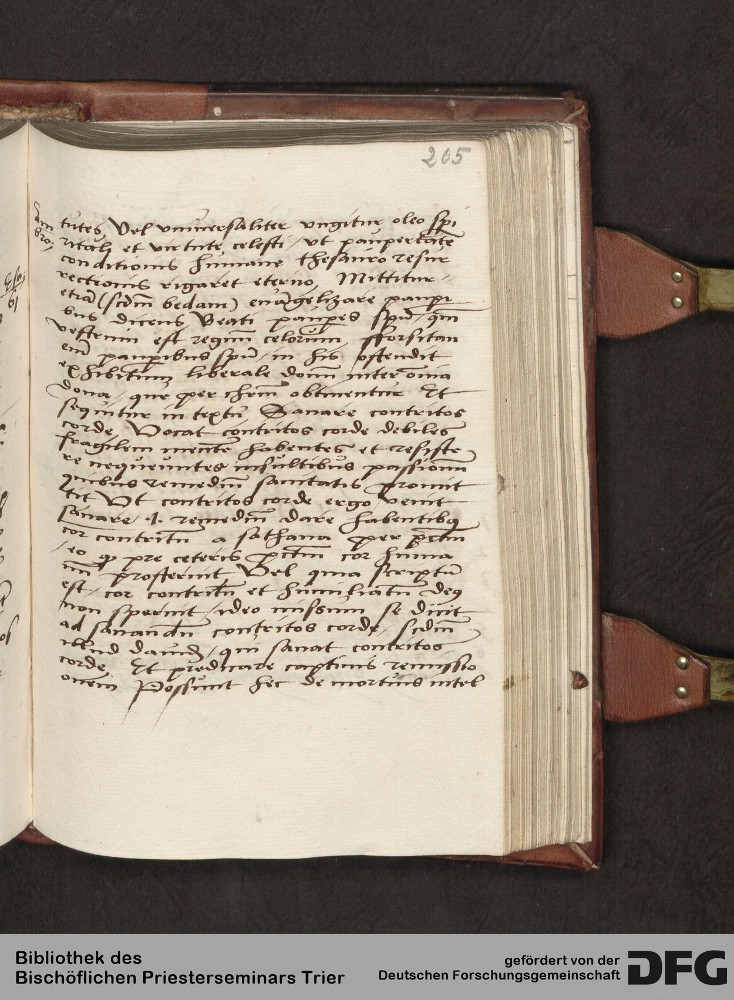 205
Am
bro.
tutes, Vel vniuersaliter vngitur oleo spi
ritali et virtute celesti, vt paupertatē
conditionis humane thesauro resur
rectionis rigaret eterno, Mittitur
etiā (scdm̄ bedam) euāgelizare paupi
bus dicens Beati paupes spū, qm̄
vestrum est regnū celorum, fforsitan
em̄ paupibus spū in his ostendit
exhibitum liberale donū inter oīa
dona, que per chrm̄ obtinentur Et
sequitur in textu Sanare contritos
corde, Vocat contritos corde debiles
fragilem mentē habentes et resiste
re nequeuntes insultibus passionū
quibus remediū sanitatis promit
tit Vt contritos corde ergo venit
sanare .i. remediū dare habentibq
cor contritū a sathana per pctm̄
eo qp pre ceteris pctm̄ cor huma
nū prosternit Vel quia scriptū
est, cor contritū et humiliatū deq
non spernit, ideo missum se dicit
ad sanandū contritos corde, scdm̄
illud dauid, qui sanat contritos
corde, Et predicare captiuis remissio
onem Possunt hec de mortuis intel
Bibliothek des
Bischöflichen Priesterseminars Trier
gefördert von der
Deutschen Forschungsgemeinschaft
DFG